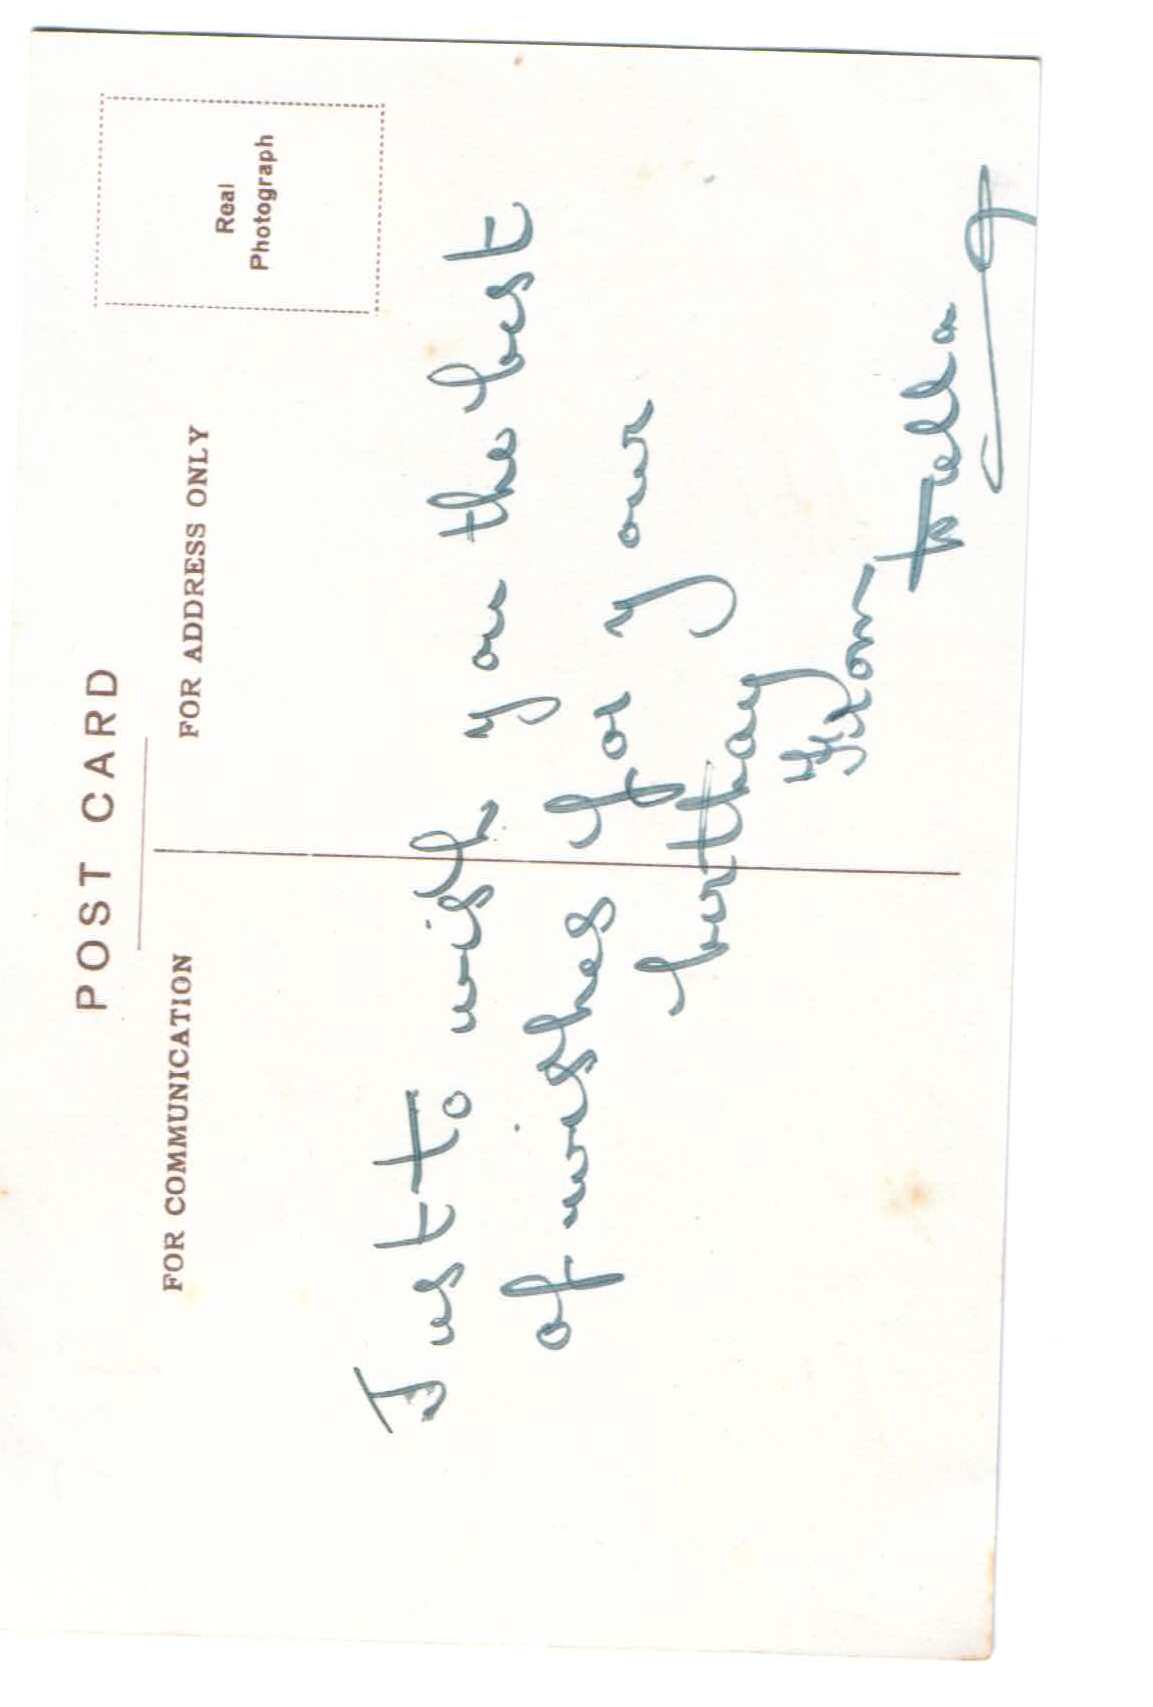 POST CARD
FOR COMMUNICATION
FOR ADDRESS ONLY
Real
Photograph
Just to wish you the best
of wishes for your
birthday
from